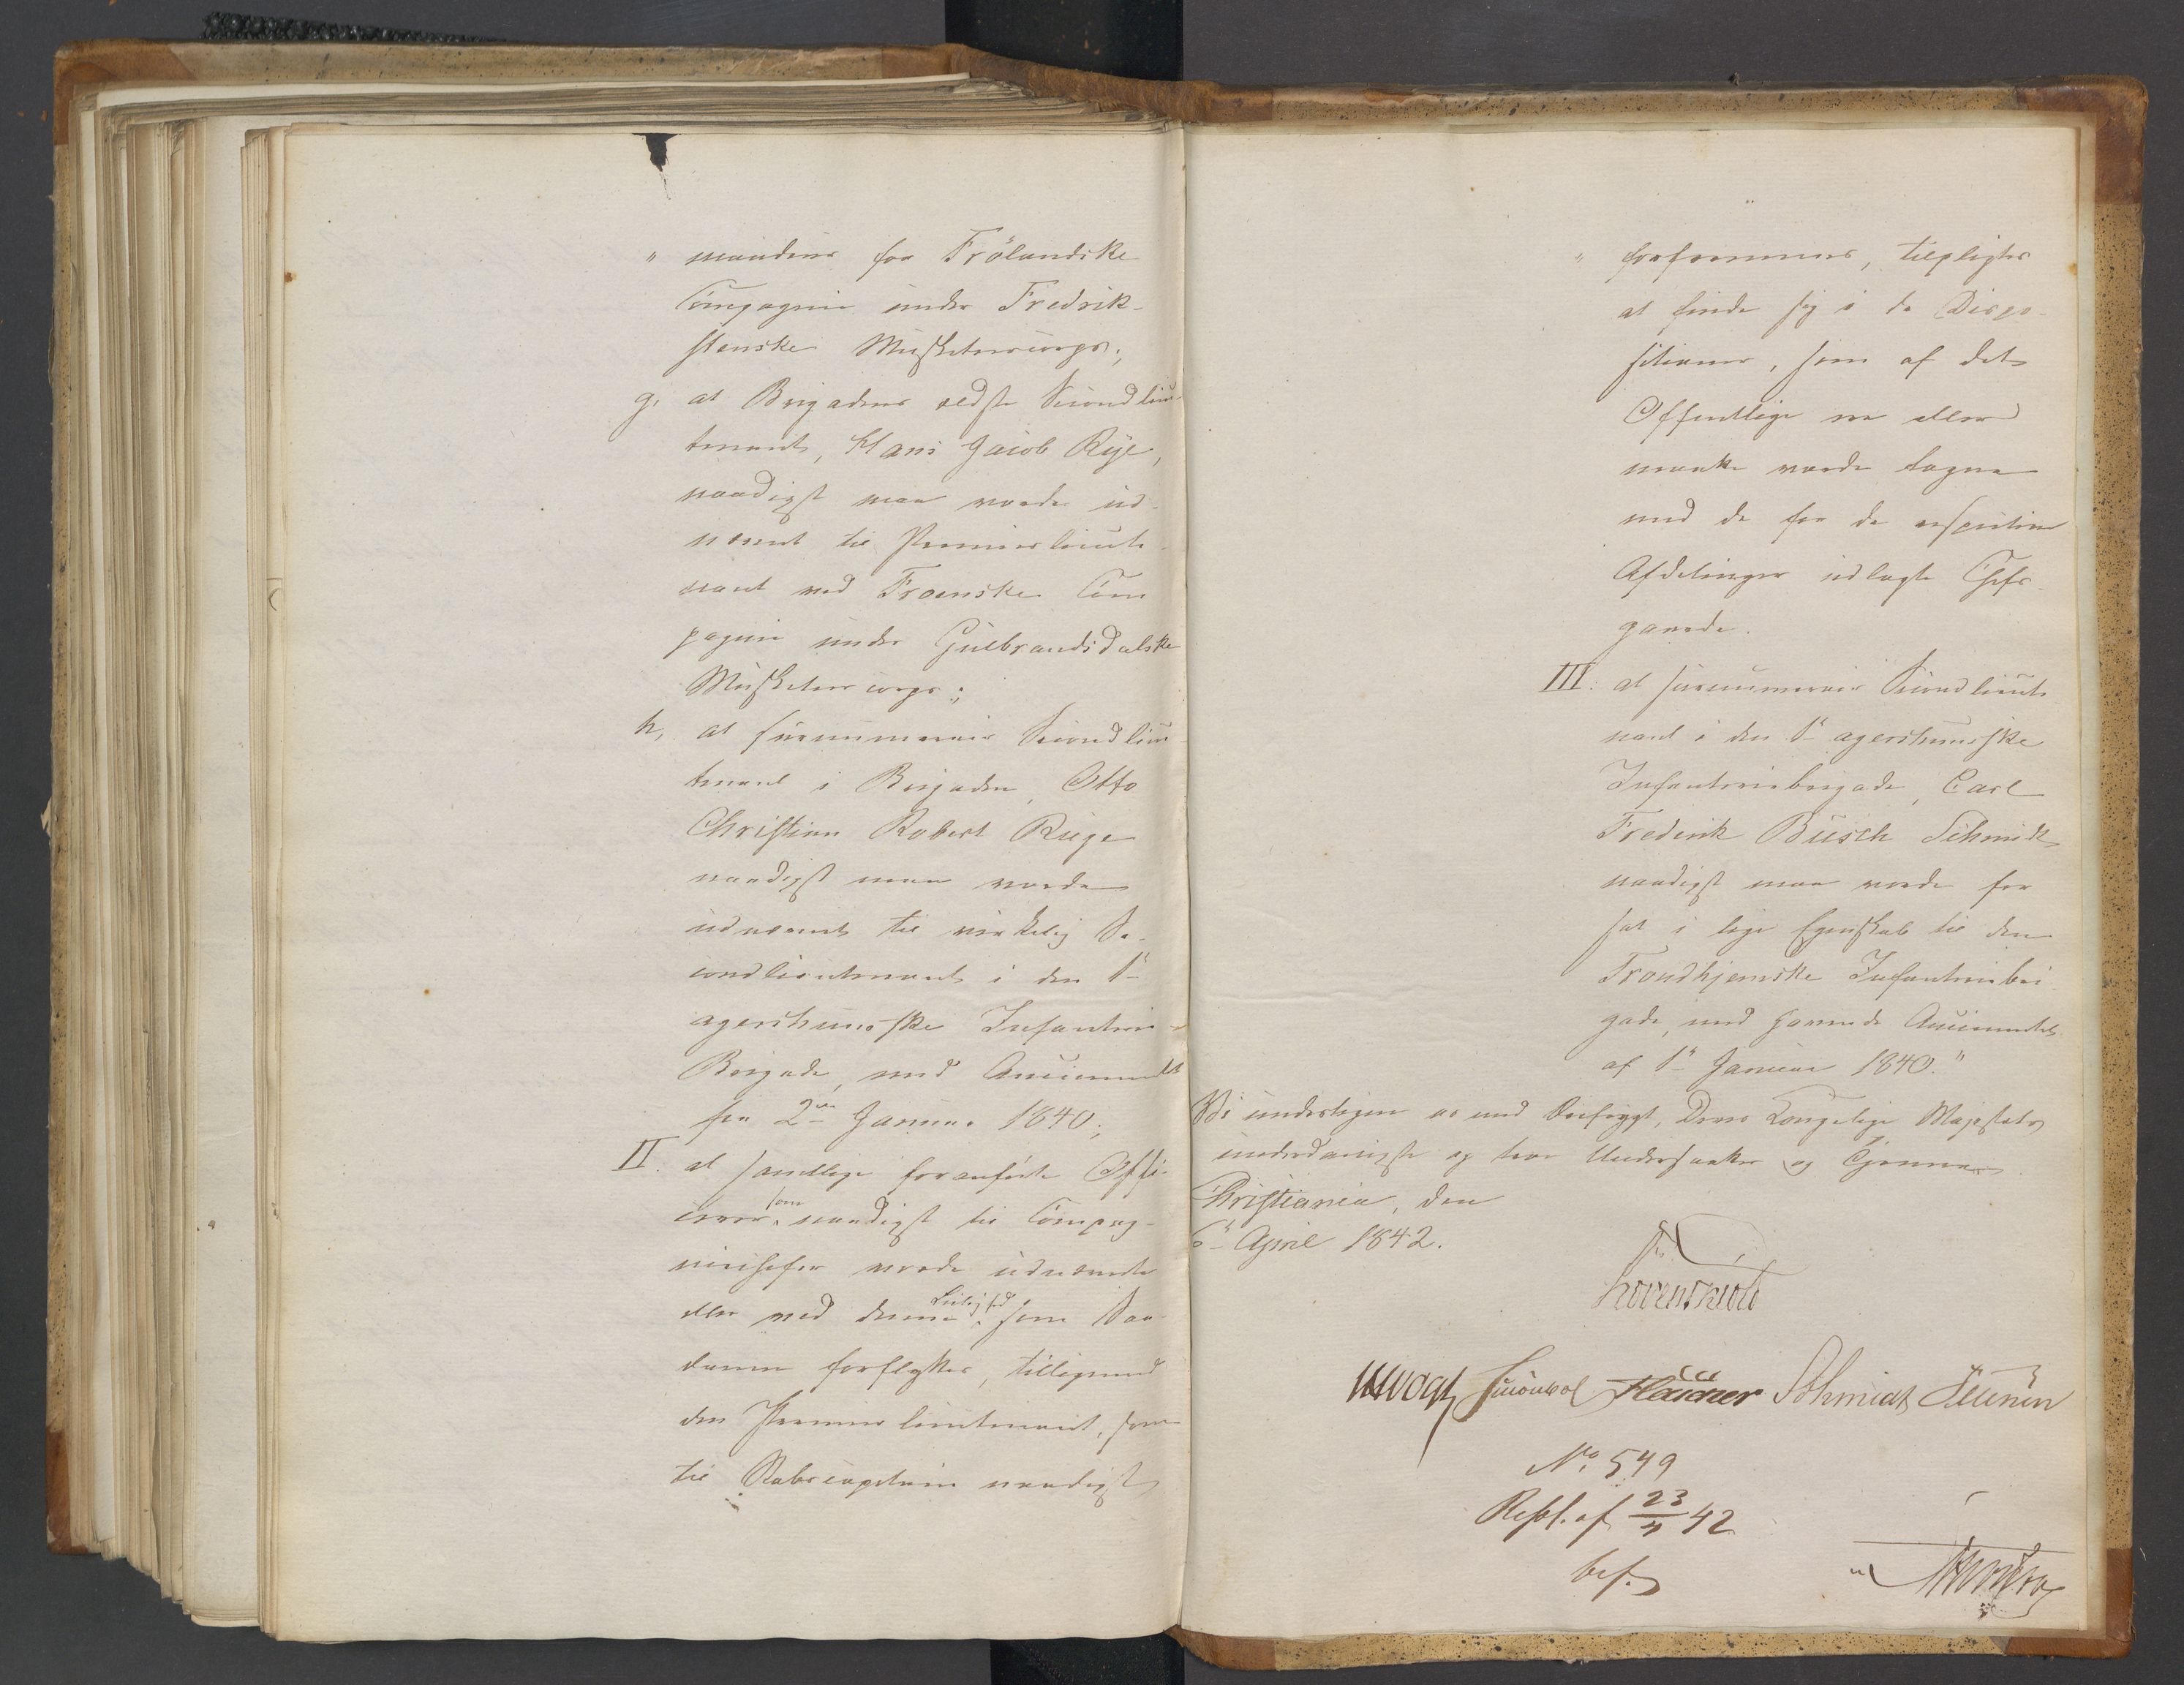 " mandeur for Frölandske
Compagnie under Fredrik-
stenske Musketeercorps;
g, at Brigadens ældste Secondlieu-
tenant, Hans Jacob Rye,
naadigst maa vorde ud-
nævnt til Premierlieute-
nant ved Froenske Com
pagnie under Gulbrandsdalske
Musketeercorps;
h, at surnumerair Secondlieu
tenant i Brigaden, Otto
Christian Robert Riege
naadigst maa vorde
udnævnt til virkelig Se-
condlieutenant i den 1ste
agershuusske Infanterie-
Brigade, med Anciennitet
fra 2den Januar 1840;
II. at samtlige foranførte Offi-
cerer, som naadigst til Compag-
niechefer vorde udnævnte
eller ved denne Leilighed som Saa-
danne forflyttes, tilligemed
den Premierlieutenant, som
til Stabscapitain naadigst
" forfremmes, tilpligtes
at finde sig i de Dispo-
sitioner, som af det
Offentlige ere eller
maatte vorde tagne
med de for de respective
Afdelinger udlagte Chefs-
gaarde.
III. at surnumerair Secondlieute
nant i den 1ste agershuusske
Infanteriebrigade, Carl
Frederik Büsch Schmidt
naadigst maa vorde for
sat i lige Egenskab til den
Trondhjemske Infanteriebri
gade, med havende Anciennitet
af 1ste Januar 1840."
Vi undertegne os med Dybfrygt, Deres Kongelige Majestæts
underdanigste og troe Undersaatter og Tjenere.
Christiania, den
6te April 1842.
Løvenskiold
Vogt Sibbern Fleischer Schmidt
No. 549
Resol. af 23/4 42
bef.